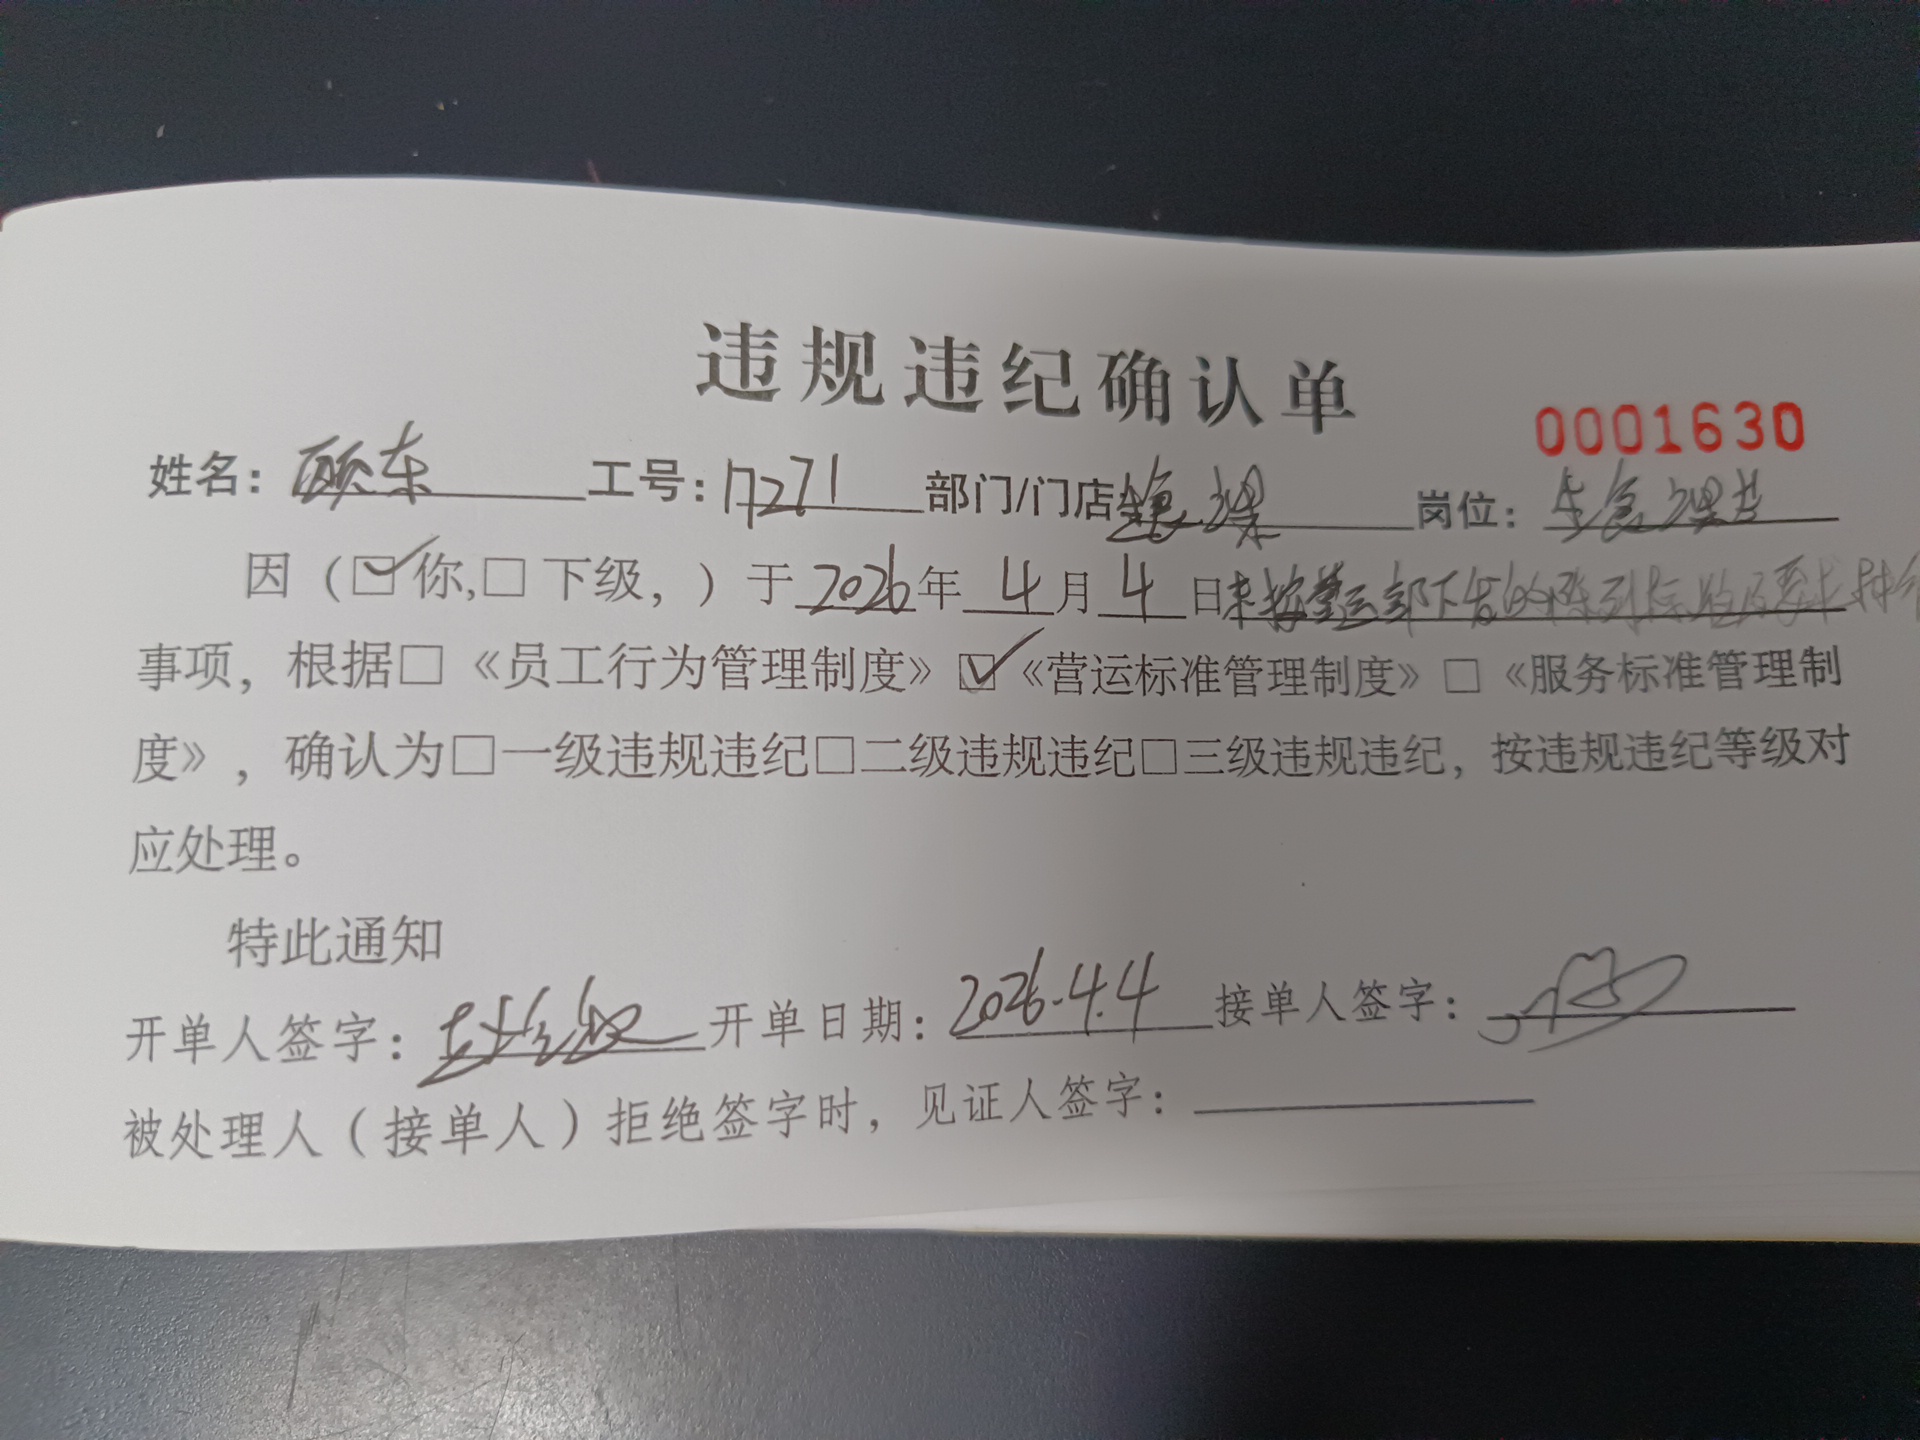 违规违纪确认单
0001630
姓名：顾东 工号：17271 部门/门店 岗位：生鲜课长
因（☑你，□下级，）于2026年4月4日未按营运部下发的陈列标准及要求执行
事项，根据□《员工行为管理制度》☑《营运标准管理制度》□《服务标准管理制
度》，确认为□一级违规违纪□二级违规违纪□三级违规违纪，按违规违纪等级对
应处理。
特此通知
开单人签字： 开单日期：2026.4.4 接单人签字：
被处理人（接单人）拒绝签字时，见证人签字：